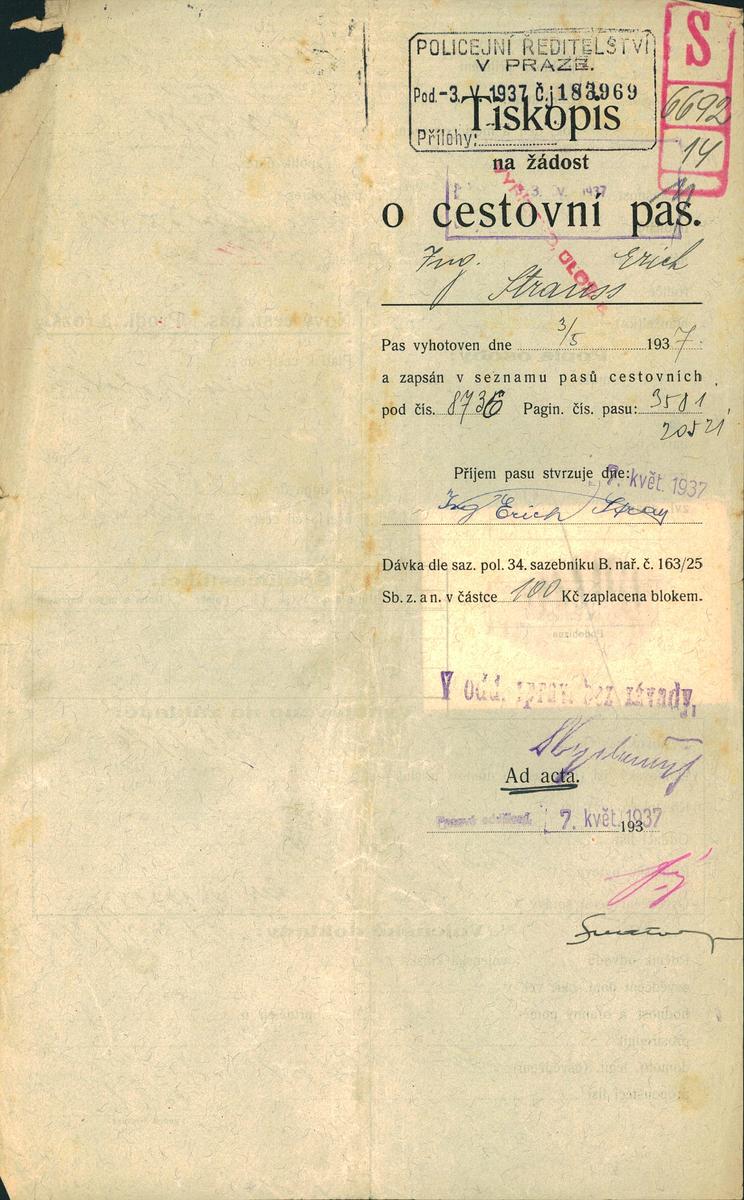 POLICEJNÍ ŘEDITELSTVÍ
V PRAZE.
Pod. -3. V. 1937 Č.j. 183969
Přílohy:
S
6692
14
Tiskopis
na žádost
3. V. 1937
o cestovní pas.
Ing. Erich
Strauss
Pas vyhotoven dne 3/5 1937.
a zapsán v seznamu pasů cestovních
pod čís. 8736 Pagin. čís. pasu: 3501
20521
Příjem pasu stvrzuje dne: 7. květ. 1937
Ing Erich Strauss
Dávka dle saz. pol. 34. sazebníku B. nař. č. 163/25
Sb. z. a n. v částce 100 Kč zaplacena blokem.
V odd. zpráv. bez závady.
Ad acta.
Pasové oddělení. 7. květ. 1937
193